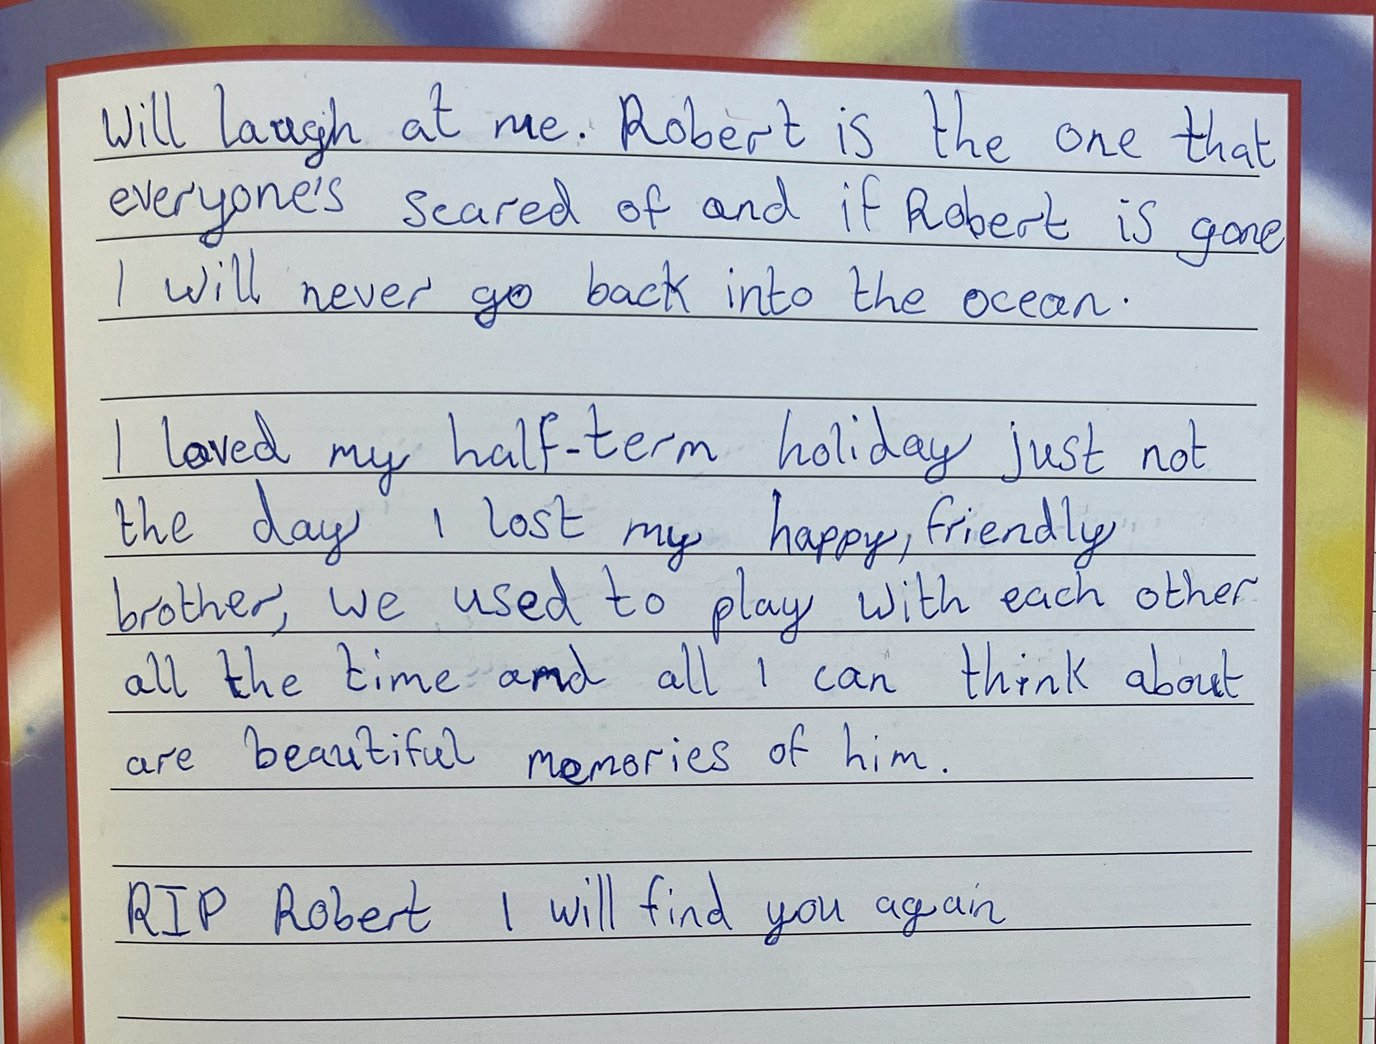 Will laugh at me. Robert is the one that
everyone's scared of and if Robert is gone
I will never go back into the ocean.
I loved my half-term holiday just not
the day I lost my happy, friendly
brother, we used to play with each other
all the time and all I can think about
are beautiful memories of him.
RIP Robert I will find you again